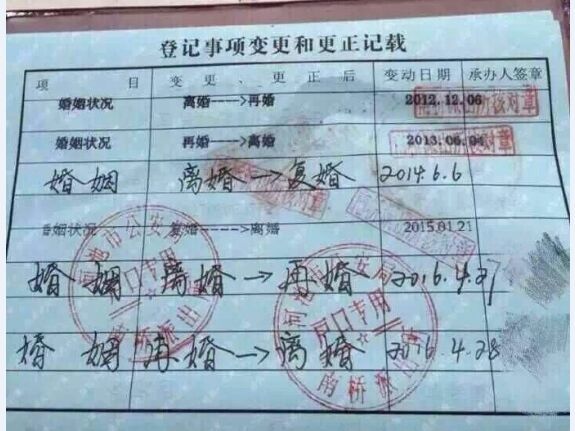 登记事项变更和更正记载
项 目 变 更 、 更 正 后 变动日期 承办人签章
婚姻状况 离婚---->再婚 2012.12.06
婚姻状况 再婚---->离婚 2013.06.04
婚 姻 离婚→复婚 2014.6.6
婚姻状况 复婚---->离婚 2015.01.21
婚 姻 离婚→再婚 2016.4.27
婚 姻 再婚→离婚 2016.4.28
河池市公安局
户口专用
南桥派出所
河池市公安局
户口专用
南桥派出所